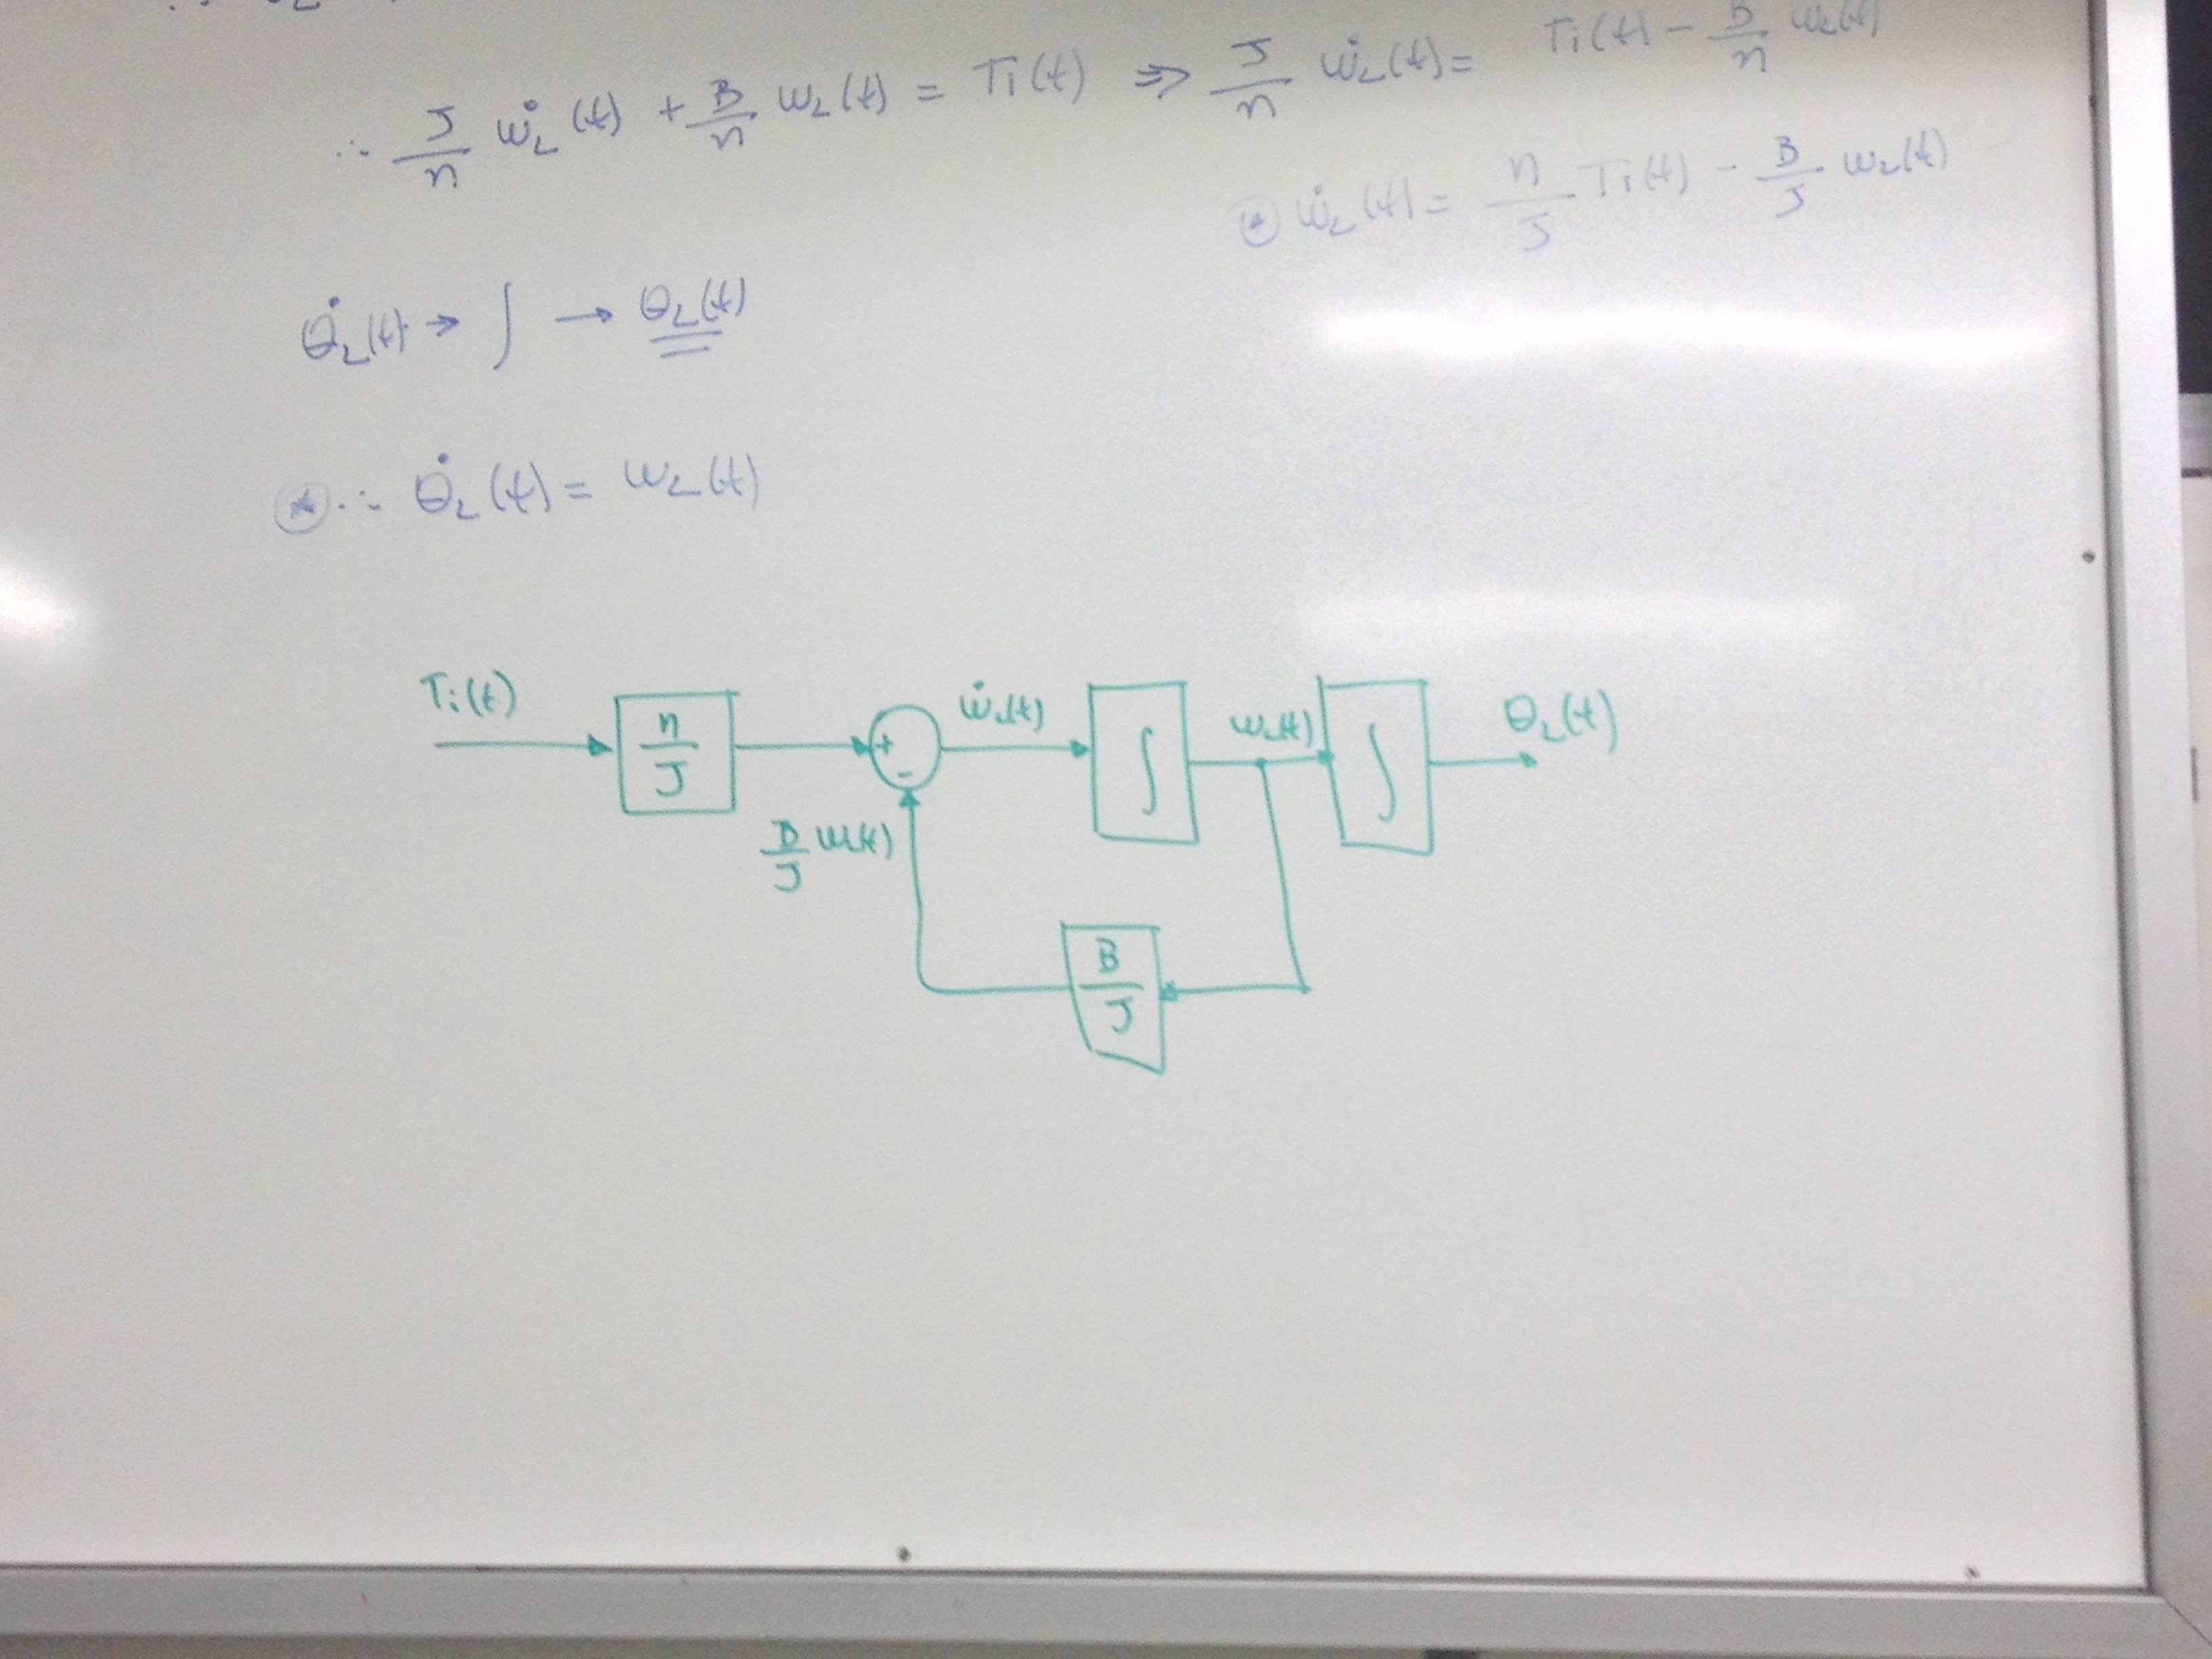 ∴ J/n ω̇L(t) + B/n ωL(t) = Ti(t) ⇒ J/n ω̇L(t) = Ti(t) − B/n ωL(t)
⊛ ω̇L(t) = n/J Ti(t) − B/J ωL(t)
θ̇L(t) → ∫ → θL(t)
⊛ ∴ θ̇L(t) = ωL(t)
Ti(t) n/J + − ω̇L(t) ∫ ωL(t) ∫ θL(t)
B/J ωL(t)
B/J